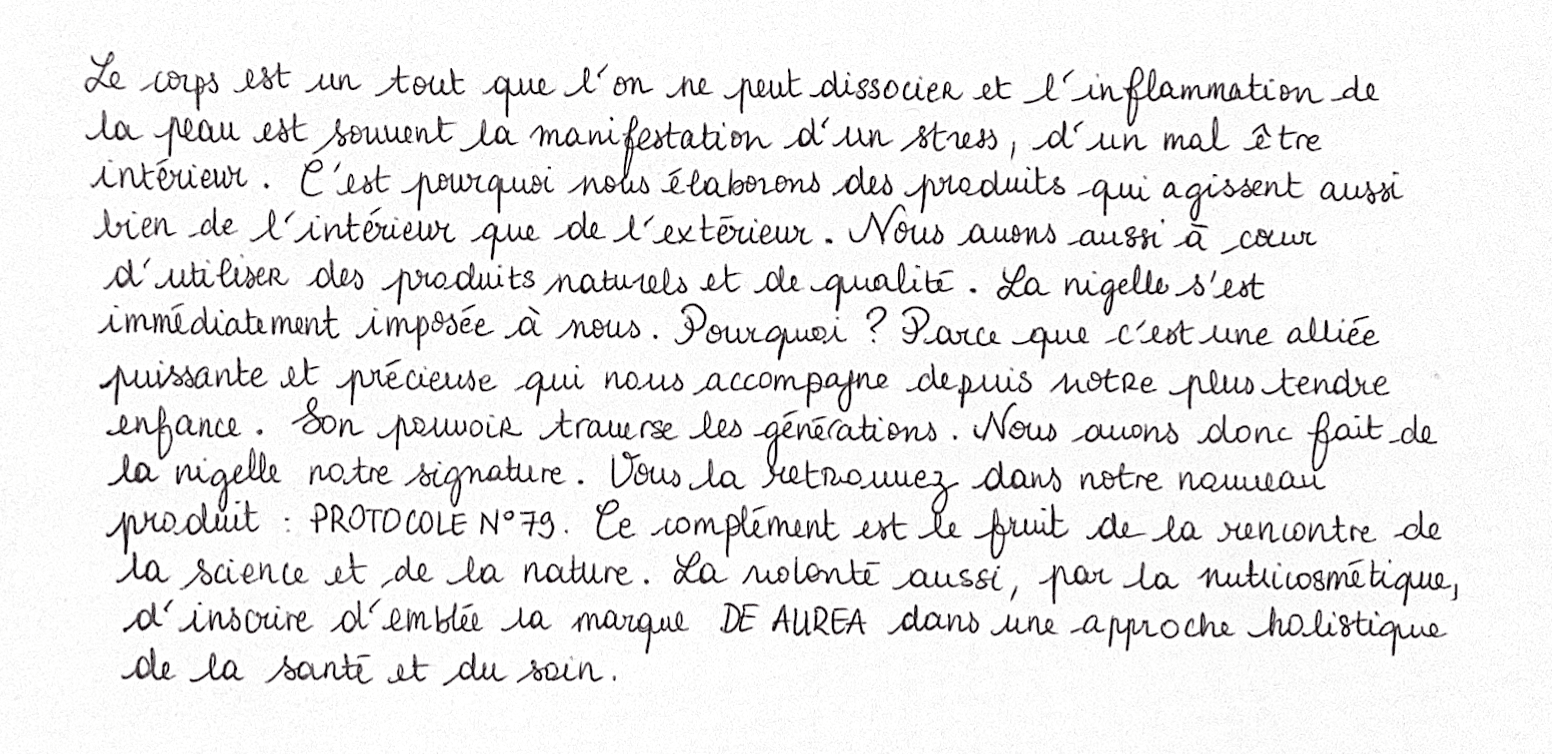 Le corps est un tout que l'on ne peut dissocier et l'inflammation de
la peau est souvent la manifestation d'un stress, d'un mal être
intérieur. C'est pourquoi nous élaborons des produits qui agissent aussi
bien de l'intérieur que de l'extérieur. Nous avons aussi à cœur
d'utiliser des produits naturels et de qualité. La nigelle s'est
immédiatement imposée à nous. Pourquoi ? Parce que c'est une alliée
puissante et précieuse qui nous accompagne depuis notre plus tendre
enfance. Son pouvoir traverse les générations. Nous avons donc fait de
la nigelle notre signature. Vous la retrouvez dans notre nouveau
produit : PROTOCOLE N°79. Ce complément est le fruit de la rencontre de
la science et de la nature. La volonté aussi, par la nutricosmétique,
d'inscrire d'emblée la marque DE AUREA dans une approche holistique
de la santé et du soin.